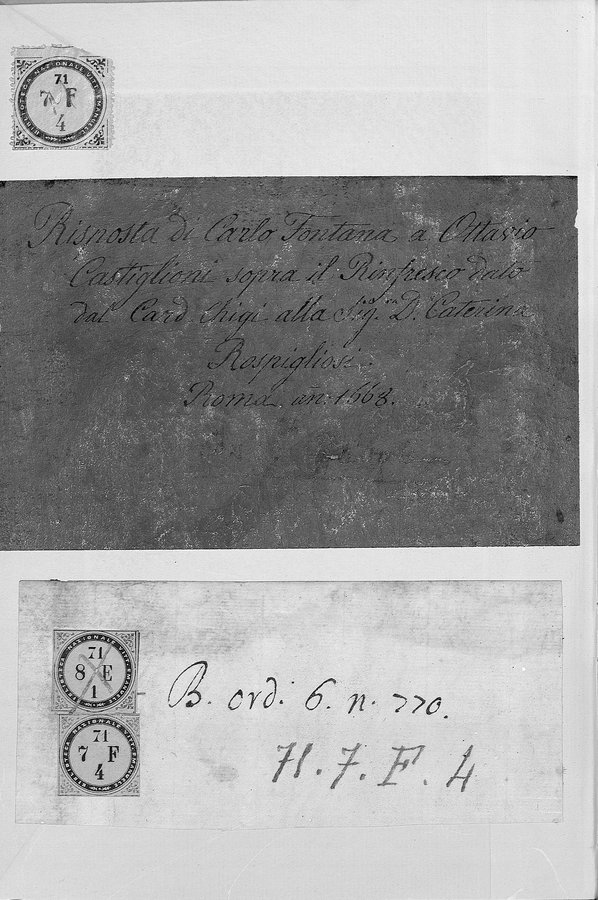 BIBLIOTECA NAZIONALE VITT. EMANUELE
71
7 F
4
Risposta di Carlo Fontana a Ottavio
Castiglioni sopra il Rinfresco dato
dal Card. Chigi alla Sig.ra D. Caterina
Rospigliosi.
Roma an: 1668.
BIBLIOTECA NAZIONALE VITT. EMANUELE
71
8 E
1
B. ord: 6. n. 770.
BIBLIOTECA NAZIONALE VITT. EMANUELE
71
7 F
4
71. 7. F. 4